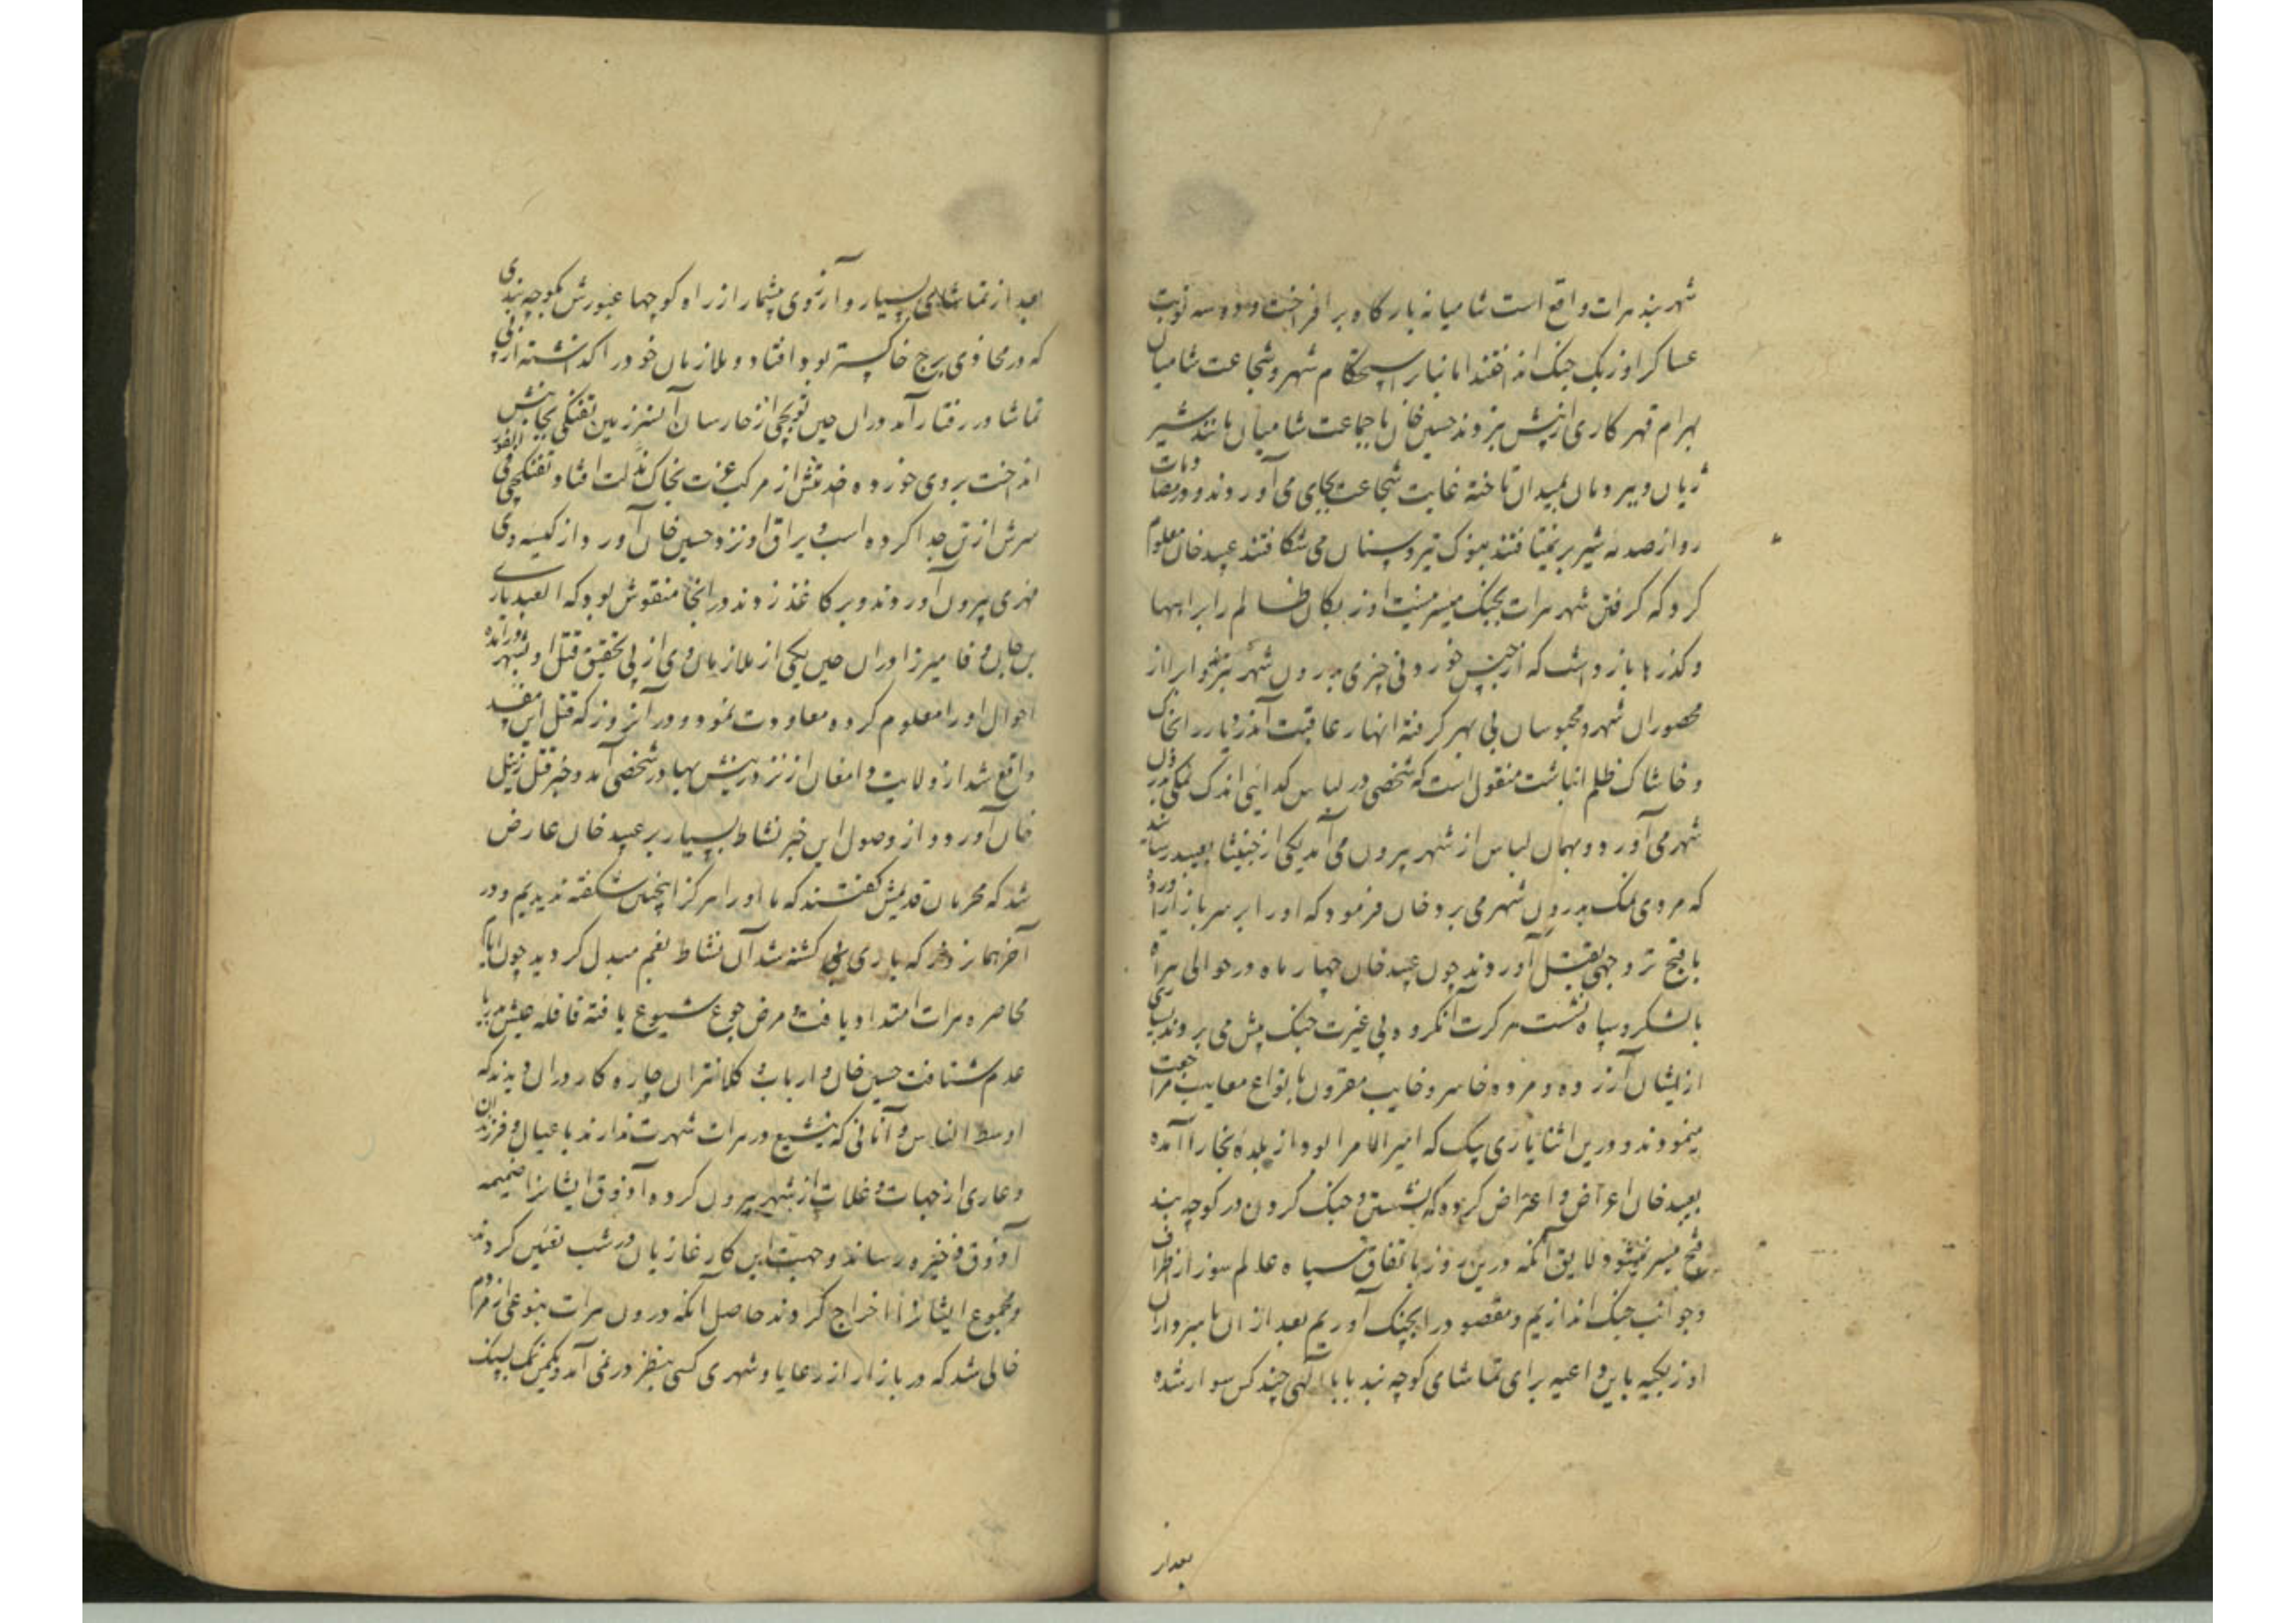 شهربند هرات واقع است شامیانه بارگاه برافراخت و ده سه نوبت
عساکر اوزبک جنک انداختند اما بنابر استحکام شهر و شجاعت شامیان
بهرام قهر کاری از پیش نبردند حسین خان با جماعت شامیان مانند شیر
ژیان و ببر دمان بمیدان تاخته غایت شجاعت بجای می آوردند و در مضا
رو از صدمه شیر برنمیتافتند بنوک تیر و سنان می شکافتند عبید خان معلوم
کرد که کرفتن شهر هرات بجنک میسر نیست اوزبکان ظالم را بر راهها
و کذرها بازداشت که از جنس خوردنی چیزی بدرون شهر نبرند
محصوران شهر و محبوسان بی بهر کرفته انهار عاقبت را بخاک
و خاشاک ظلم انباشت منقول است که شخصی در لباس کدایی اندک نمکی بدرون
شهر می آورد و بهمان لباس از شهر بیرون می آمد یکی از خبیثا بعبید رسانید
که مردی نمک بدرون شهر می برد خان فرمود که او را بر سر بازار آورده
باقبح تر وجهی بقتل آوردند چون عبید خان چهار ماه در حوالی هراه
با لشکر و سپاه نشست هر کرت آنکروه بی غیرت جنک پیش می بردند بسیاری
از ایشان آزرده و مرده خاسر و خایب مقرون بانواع معایب مراجعت
مینمودند و درین اثنا یاری بیک که امیر الامرا بود از بلده بخارا آمده
بعبید خان اعراض و اعتراض کرده که نشستن و جنک کردن در کوچه بند
فتح میسر نمیشود لایق آنکه درین روز باتفاق سپاه عالم سوز از اطراف
و جوانب جنک اندازیم و مقصود را بچنک آوریم بعد از ان با میرداران
اوزبکیه باین داعیه برای تماشای کوچه بند با بابا آلهی چند کس سوار شده
بعد از
بعد از تماشای بسیار و آرزوی بیشمار از راه کوچها عبورش بکوچه بندی
که در محاذی برج خاکستر بود افتاد و ملازمان خود را گذاشته از پی
تماشا در رفتار آمد در ان حین توپچی از خارسان آستر زمین تفنکی بجانبش
انداخت بروی خورده فی الفور از مرکب عزت بخاک مذلت افتاد و تفنکچی
سرش از تن جدا کرده اسب و یراق او نزد حسین خان آورد و از کیسه وی
مهری بیرون آوردند و بر کاغذ زدند در انجا منقوش بود که العبد یاری
بن جان وفا میرزا در ان حین یکی از ملازمان وی از پی تحقیق قتل او بشهر درآمده
احوال او را معلوم کرده معاودت نمود و در آنروز که قتل این مفسد
واقع شد از ولایت دامغان از نزد زینش بهادر شخصی آمد و خبر قتل زینل
خان آورد و از وصول این خبر نشاط بسیار بر عبید خان عارض
شد که محرمان قدیمش کفتند که ما او را هرکز اینچنین شکفته ندیدیم و در
آخر همان روز که یاری بی کشته شد آن نشاط بغم مبدل کردید چون ایام
محاصره هرات امتداد یافت و مرض جوع شیوع یافته قافله عیش بدیار
عدم شتافت حسین خان و ارباب و کلانتران چاره کار در ان دیدند که
اوسط الناس و آنانی که بتشیع در هرات شهرت ندارند با عیال و فرزندان
و عاری از جهات و غلات از شهر بیرون کرده و آذوق ایشانرا ضمیمه
آذوق و ذخیره رساند و جهت این کار غازیان در شب تعیین کردند
و مجموع ایشانرا اخراج کردند حاصل آنکه درون هرات بنوعی از مردم
خالی شد که در بازار از رعایا و شهری کسی بنظر در نمی آمد و یکمن نمک